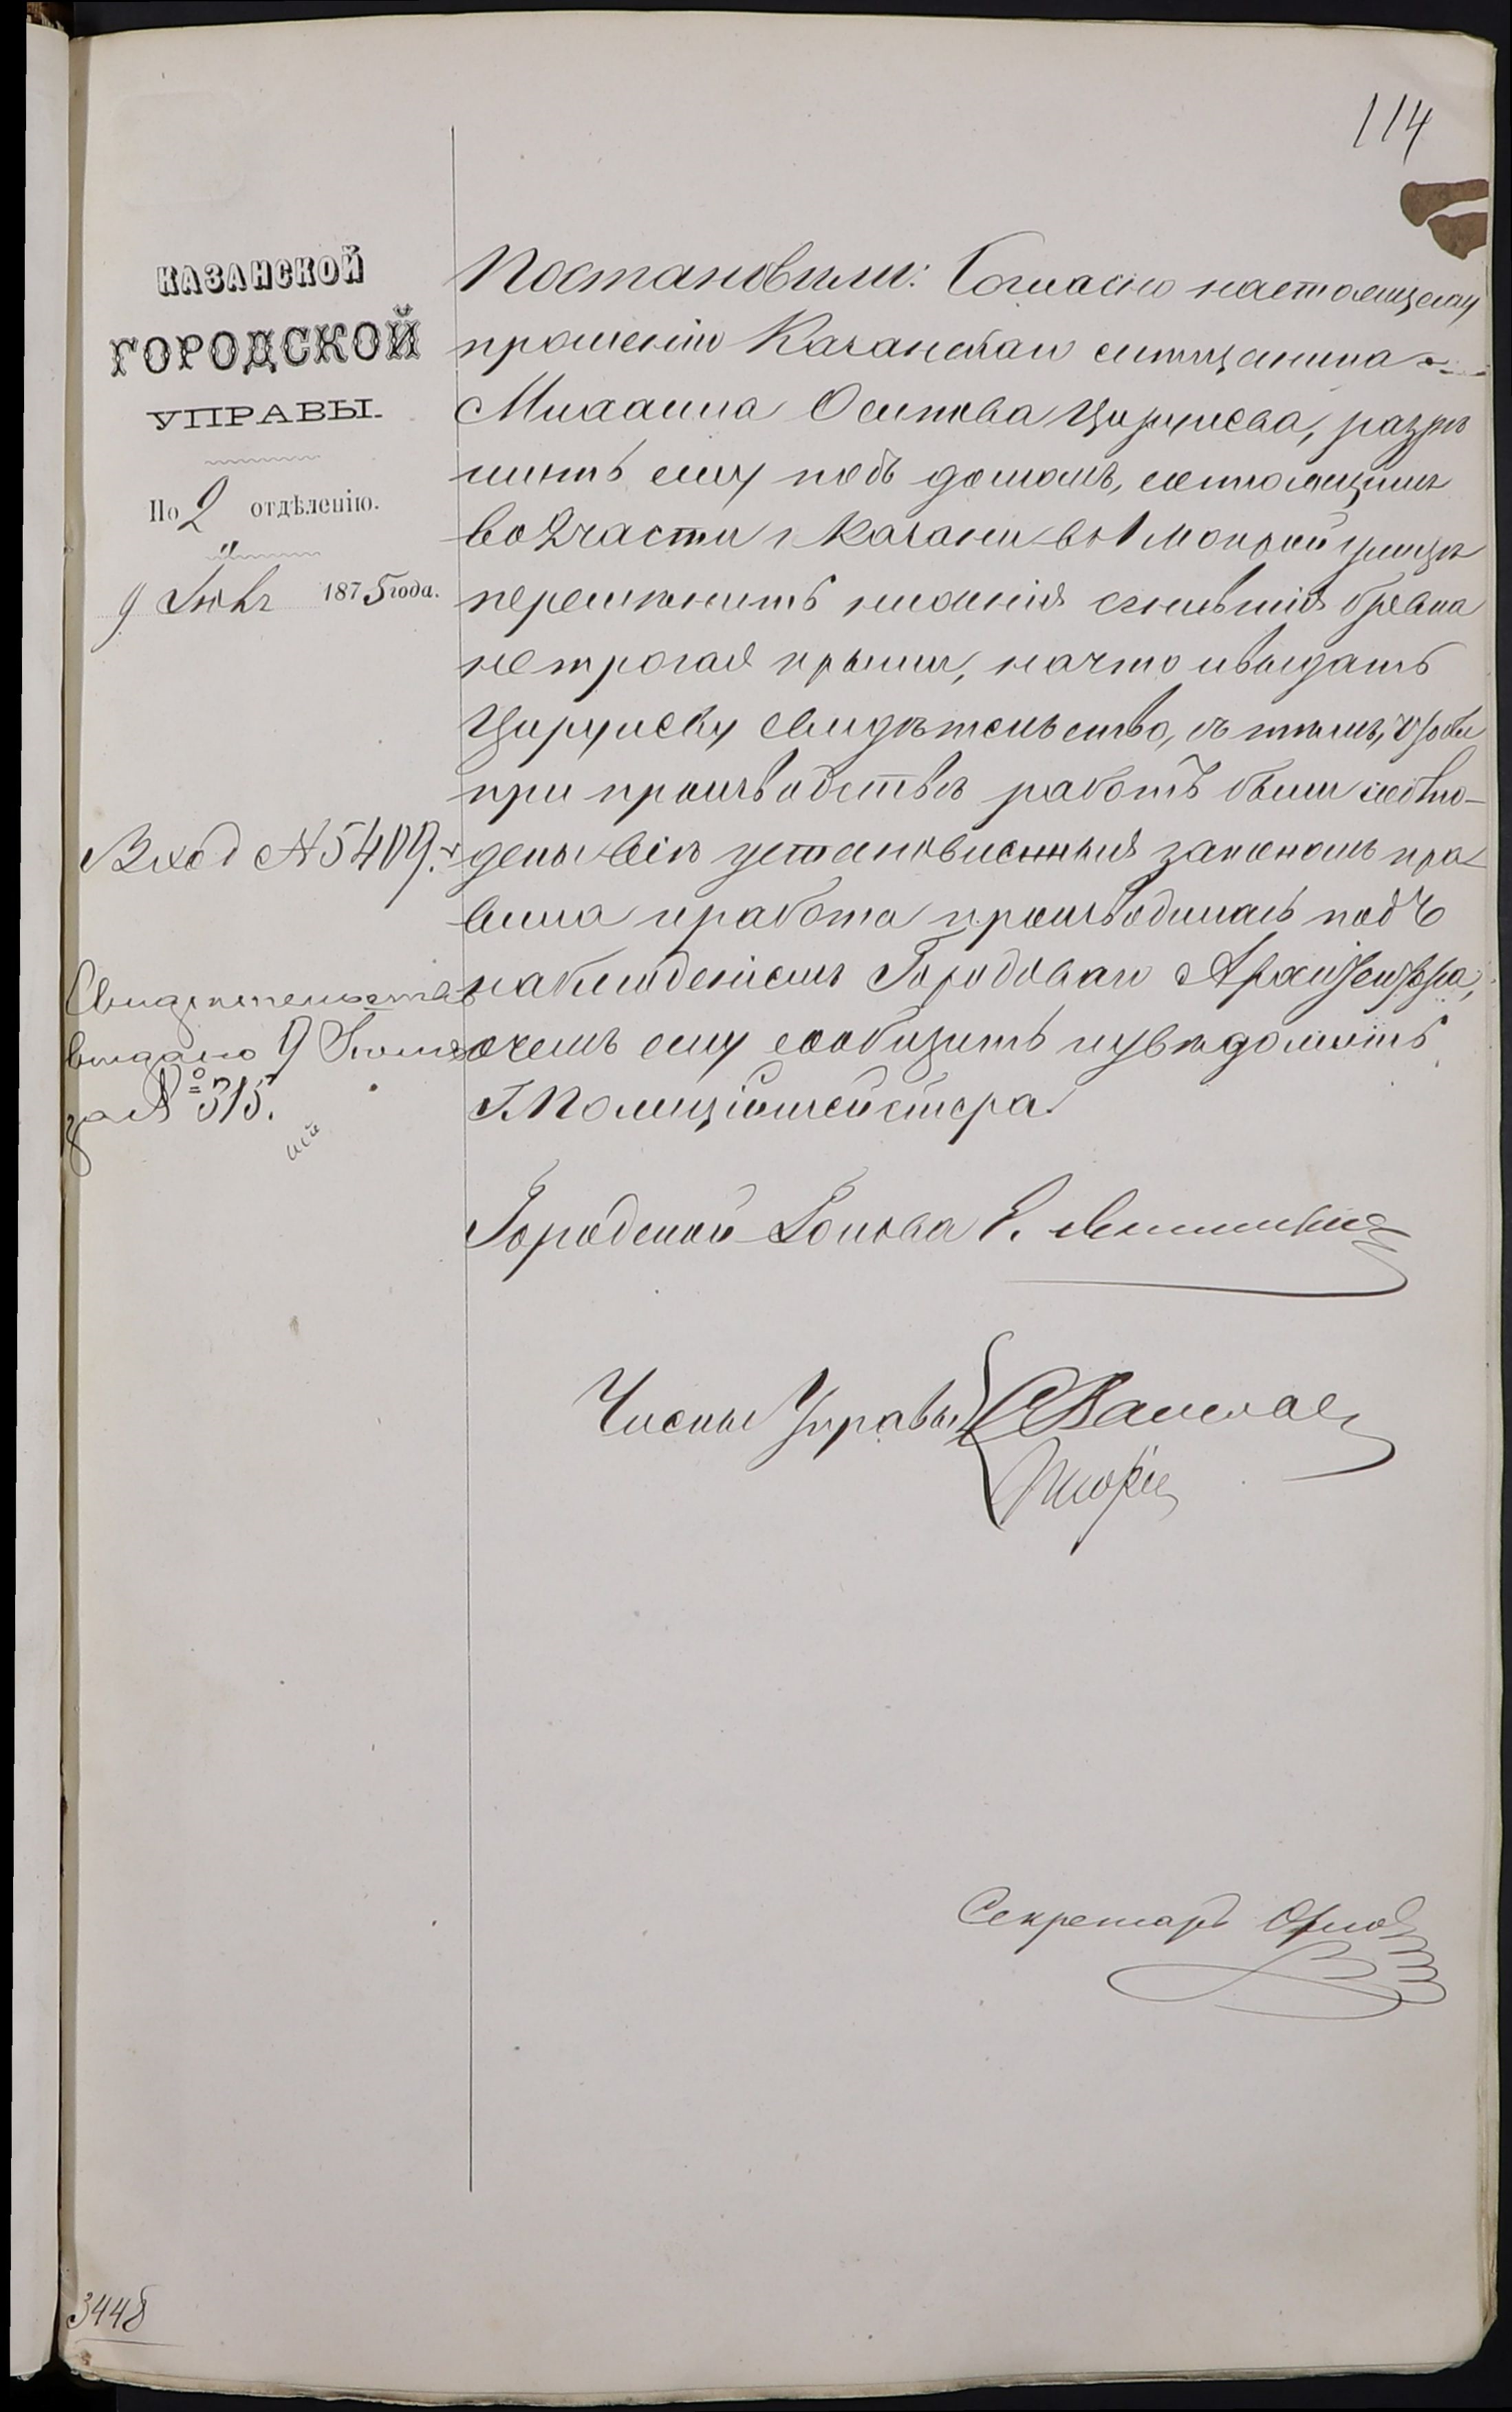 114
КАЗАНСКОЙ
ГОРОДСКОЙ
УПРАВЫ.
По 2 отдѣленію.
9 Іюня 1875 года.
Вход № 5409.
Свидѣтельство
выдано 9 Іюня
за № 315.
Постановили: Согласно настоящему
прошенію Казанскаго мѣщанина
Михаила Осипова Цируліева, разрѣ
шить ему подъ домомъ, состоящимъ
во 2 части г Казани въ 1 Мокрой улицѣ
перемѣнить нижнія сгнившія бревна
не трогая крыши, на что и выдать
Цируліеву свидѣтельство, съ тѣмъ, чтобы
при производствѣ работъ были соблю-
дены всѣ установленныя закономъ пра-
вила и работа производилась подъ
наблюденіемъ Городоваго Архитектора,
о чемъ ему сообщить и увѣдомить
Г. Полиціймейстера.
Городской Голова Е.
Члены Управы
Секретарь Орлов
3448